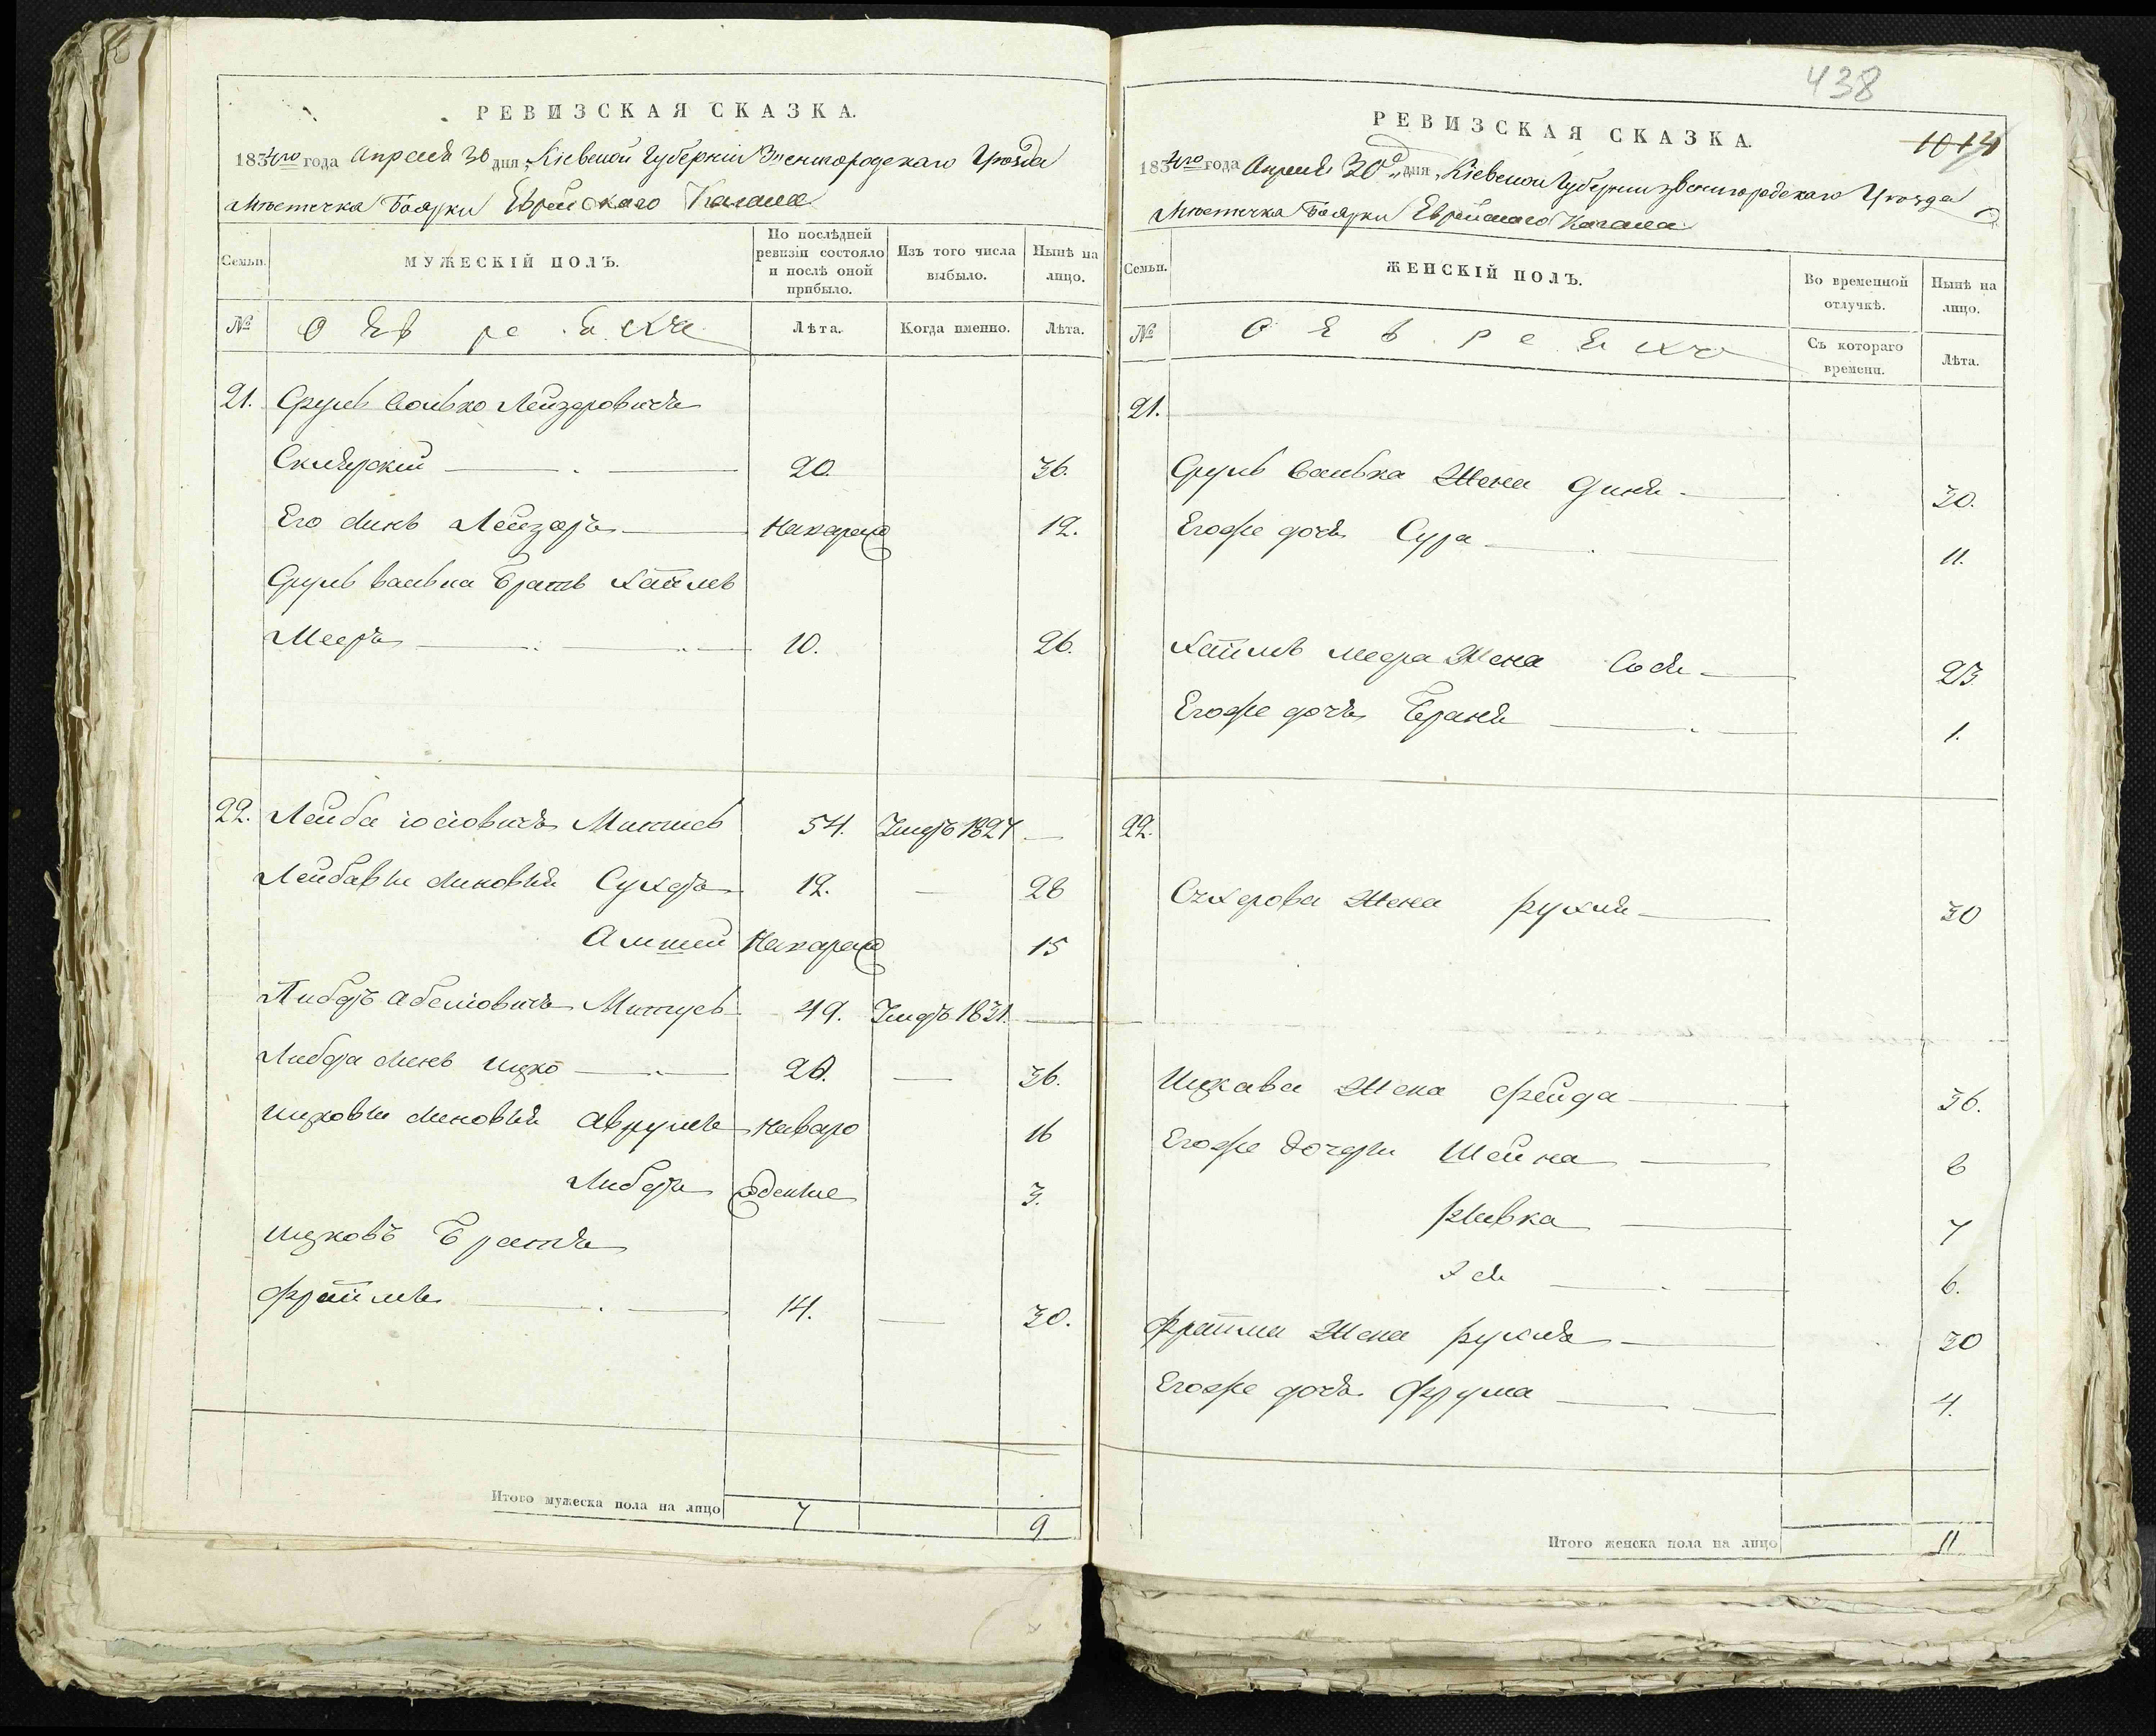 РЕВИЗСКАЯ СКАЗКА.
1834го года Апреля 30 дня, Кіевской Губерніи Звенигородскаго Уѣзда
Мѣстечка Боярки Еврейскаго Кагала
Семьи.
МУЖЕСКІЙ ПОЛЪ.
По послѣдней ревизіи состояло и послѣ оной прибыло.
Изъ того числа выбыло.
Нынѣ на лицо.
№
О Евреяхъ
Лѣта.
Когда именно.
Лѣта.
21. Сруль Волько Лейзеровичъ
Сквирскій 20. 36.
Его сынъ Лейзоръ 12.
Сруль Волька братъ Хаймъ
Мееръ 10. 26.
22. Лейба Іосіовичъ 54. Умеръ 1827
Лейбавы сыновья Сухеръ 12. 28
15
49. Умеръ 1831.
Либера сынъ Ицко 20. 36.
Ицковы сыновья Аврумъ Новоро 16
Либеръ жденые 3.
Ицковъ братъ
Фроймъ 14. 30.
Итого мужеска пола на лицо 7 9
438
РЕВИЗСКАЯ СКАЗКА.
1834го года Апреля 30го дня, Кіевской Губерніи Звенигородскаго Уѣзда
Мѣстечка Боярки Еврейскаго Кагала
Семьи.
ЖЕНСКІЙ ПОЛЪ.
Во временной отлучкѣ.
Нынѣ на лицо.
№
О Евреяхъ
Съ котораго времени.
Лѣта.
21.
Сруль Волька Жена 30.
Егоже дочь Сура 11.
Хаймъ Меера Жена Сося 23
Егоже дочь Браня 1.
22.
Сухерова Жена Рухля 30
Ицкава Жена Фейда 36.
Егоже дочери Шейна 8
Рывка 7
6.
Фройма Жена Рухля 30
Егоже дочь Фрума 4.
Итого женска пола на лицо 11